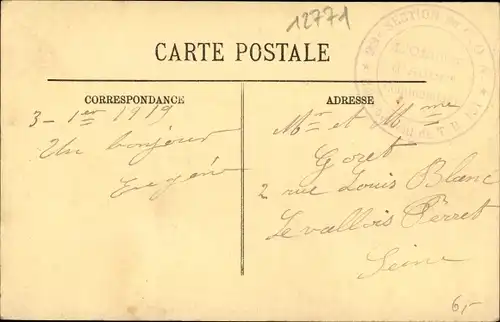 12771
CARTE POSTALE
CORRESPONDANCE
3 - 1er 1919
Un bonjour
Eugène
ADRESSE
Mr et Mme
Goret
2 rue Louis Blanc
Levallois Perret
Seine
6,-
SECTION